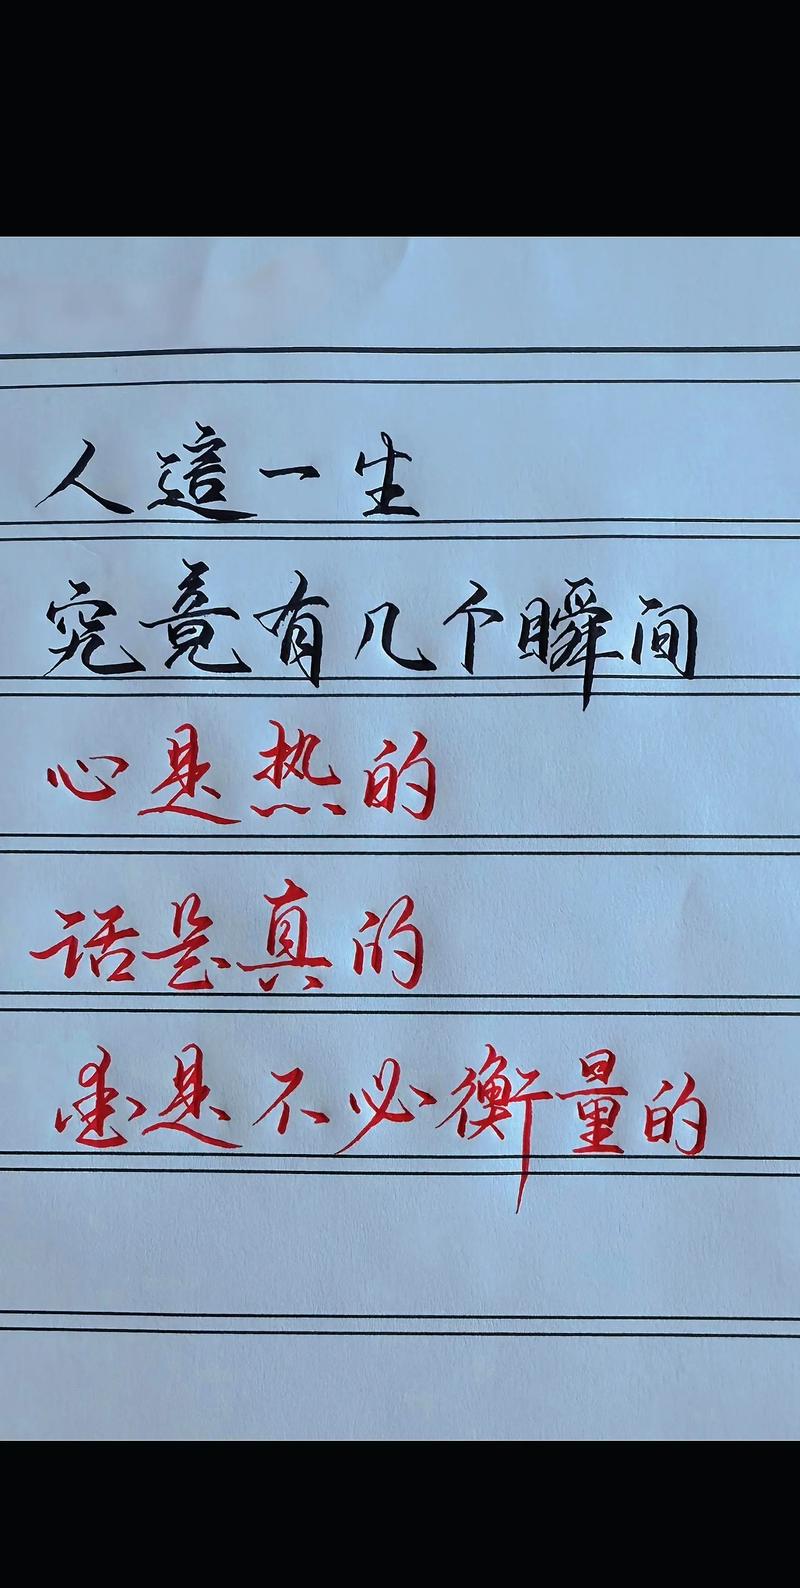 人這一生
究竟有几个瞬间
心是热的
话是真的
愛是不必衡量的